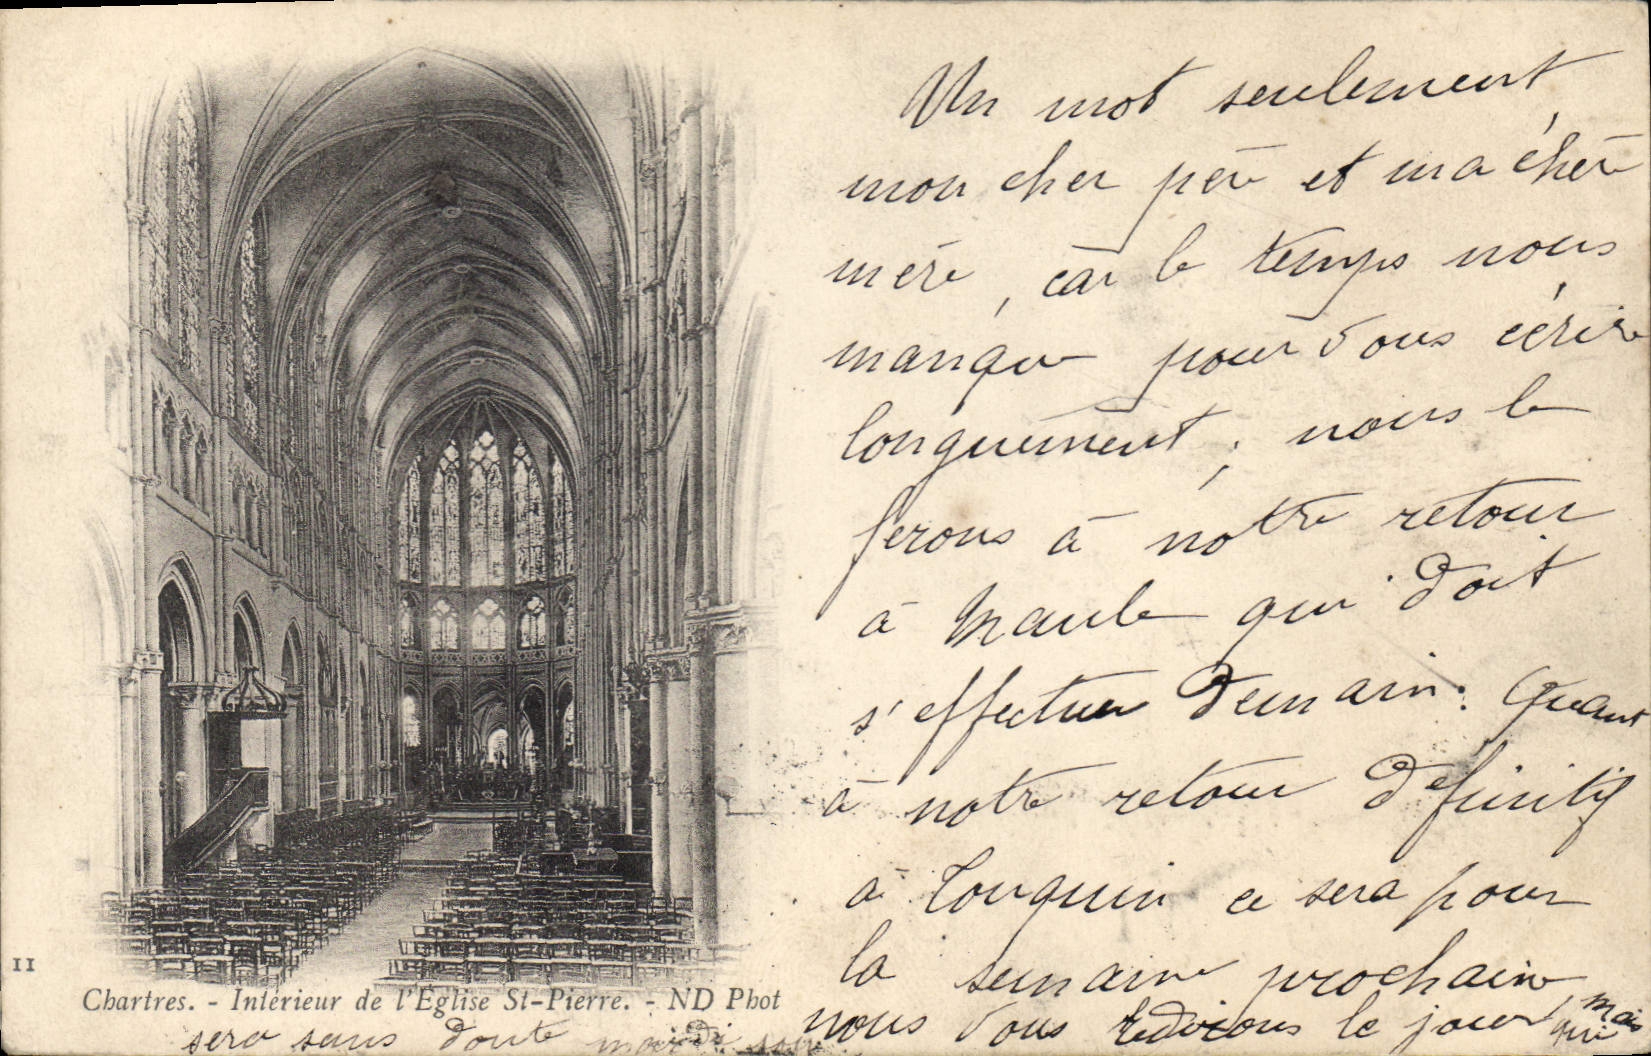 Un mot seulement,
mon cher père et ma chère
mère, car le temps nous
manque pour vous écrire
longuement; nous le
ferons à notre retour
à Maule qui doit
s'effectuer demain. Quant
à notre retour définitif
à Touquin ce sera pour
la semaine prochaine
nous vous redirons le jour mais
qui
sera sans doute mardi soir
11
Chartres. - Intérieur de l'Église St-Pierre. - ND Phot